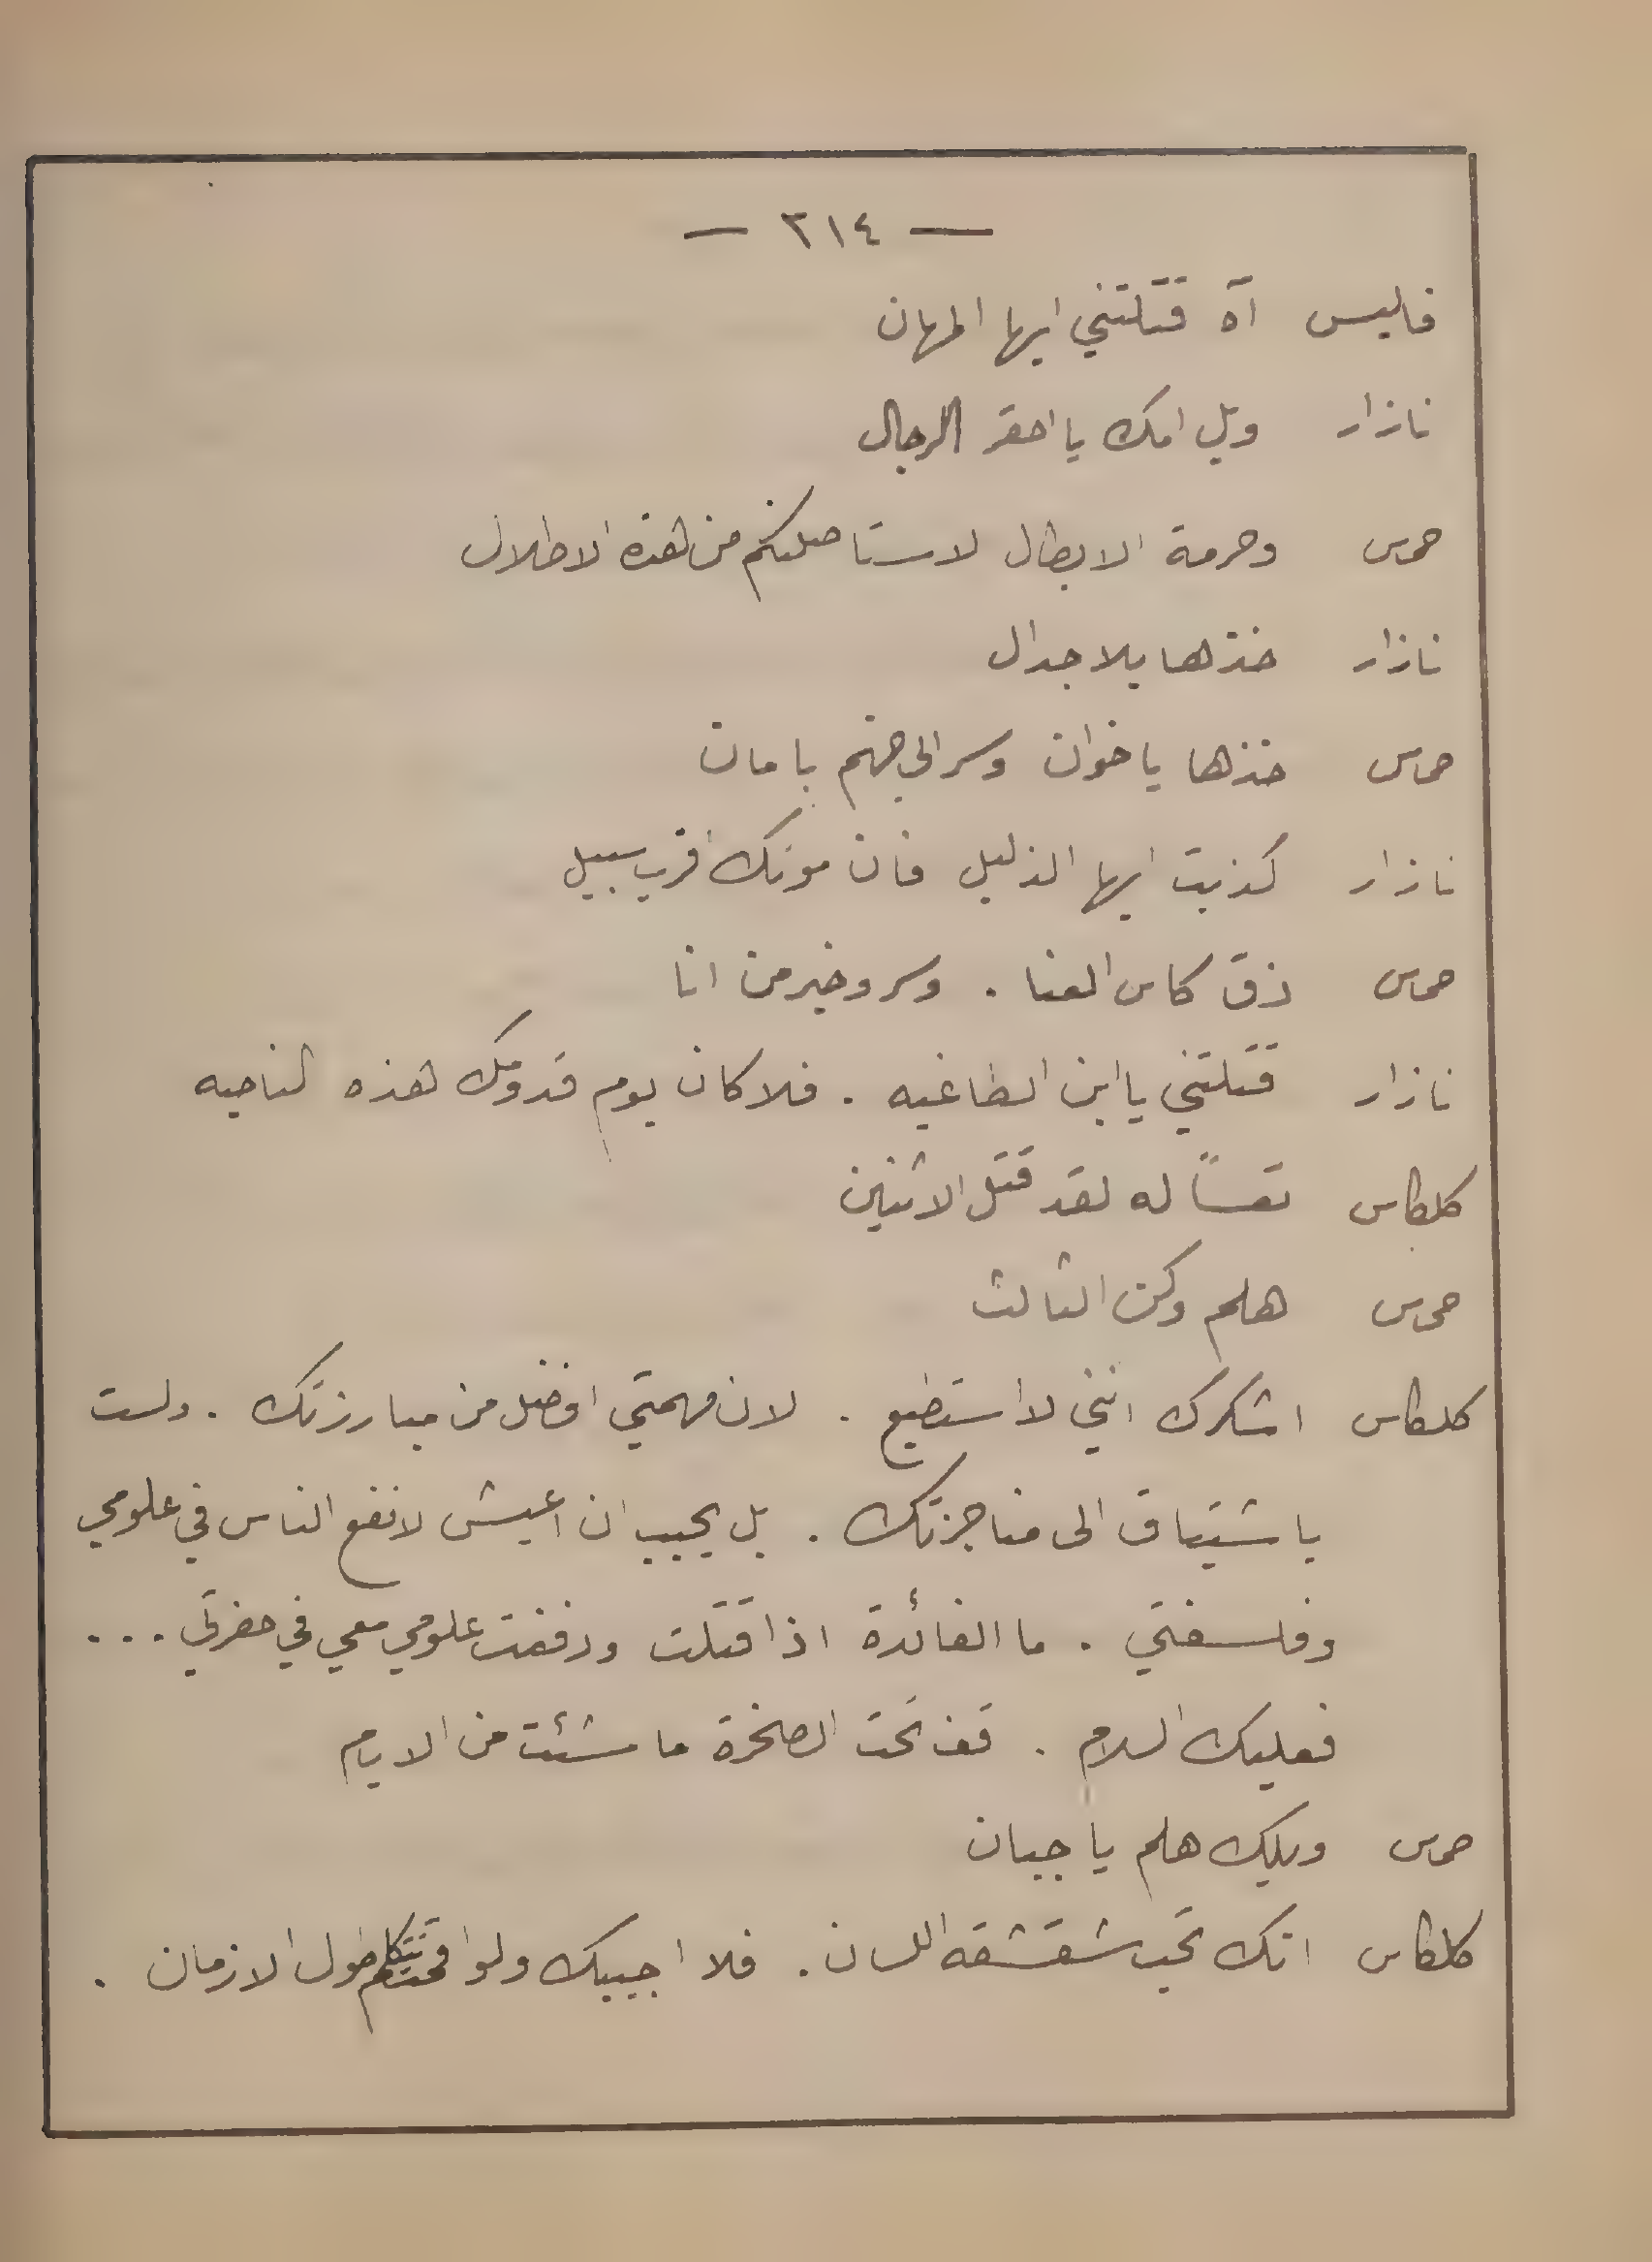 — ٣١٤ —
فاليس آه قتلتني ايها المهان
نازار ويل امك يا احقر الرجال
حماس وحرمة الابطال لاستاصلنكم من هذه الاطلال
نازار خذها بلا جدال
حماس خذها يا خوان وسر الى جهنم بامان
نازار كذبت ايها الذليل فان موتك اقرب سبيل
حماس ذق كاس الفنا . وسر وخبر من انا
نازار قتلتني يا ابن الطاغيه . فلا كان يوم قدومك لهذه الناحيه
كلكاس تعساً له لقد قتل الاثنين
حماس هلم وكن الثالث
كلكاس اشكرك انني لا استطيع . لان مهمتي افضل من مبارزتك . ولست
باشتياق الى مناجزتك . بل يجب ان اعيش لانفع الناس في علومي
وفلسفتي . ما الفائدة اذا قتلت ودفنت علومي معي في حفرتي ...
فعليك السلام . قف تحت الصخرة ما شئت من الايام
حماس ويليك هلم يا جبان
كلكاس انك تحب شقشقه اللسان . فلا اجيبك ولو اقمت تتكلم طول الازمان .